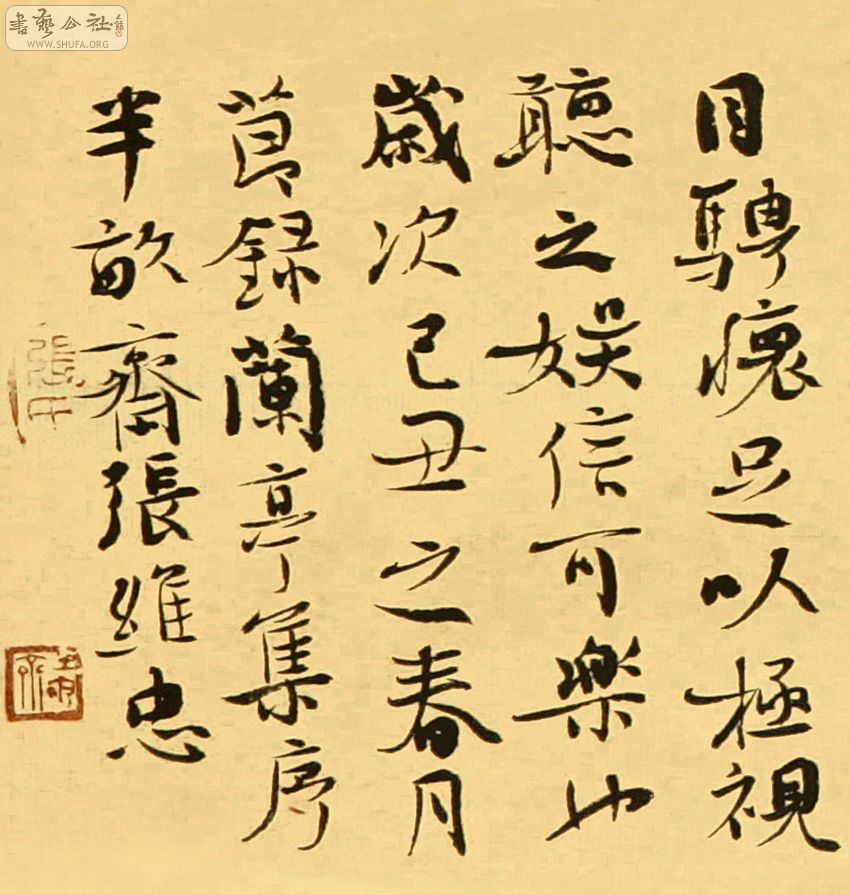 目騁懷足以極視
聽之娛信可樂也
歲次己丑之春月
節錄蘭亭集序
半畝齋張維忠
書藝公社
WWW.SHUFA.ORG